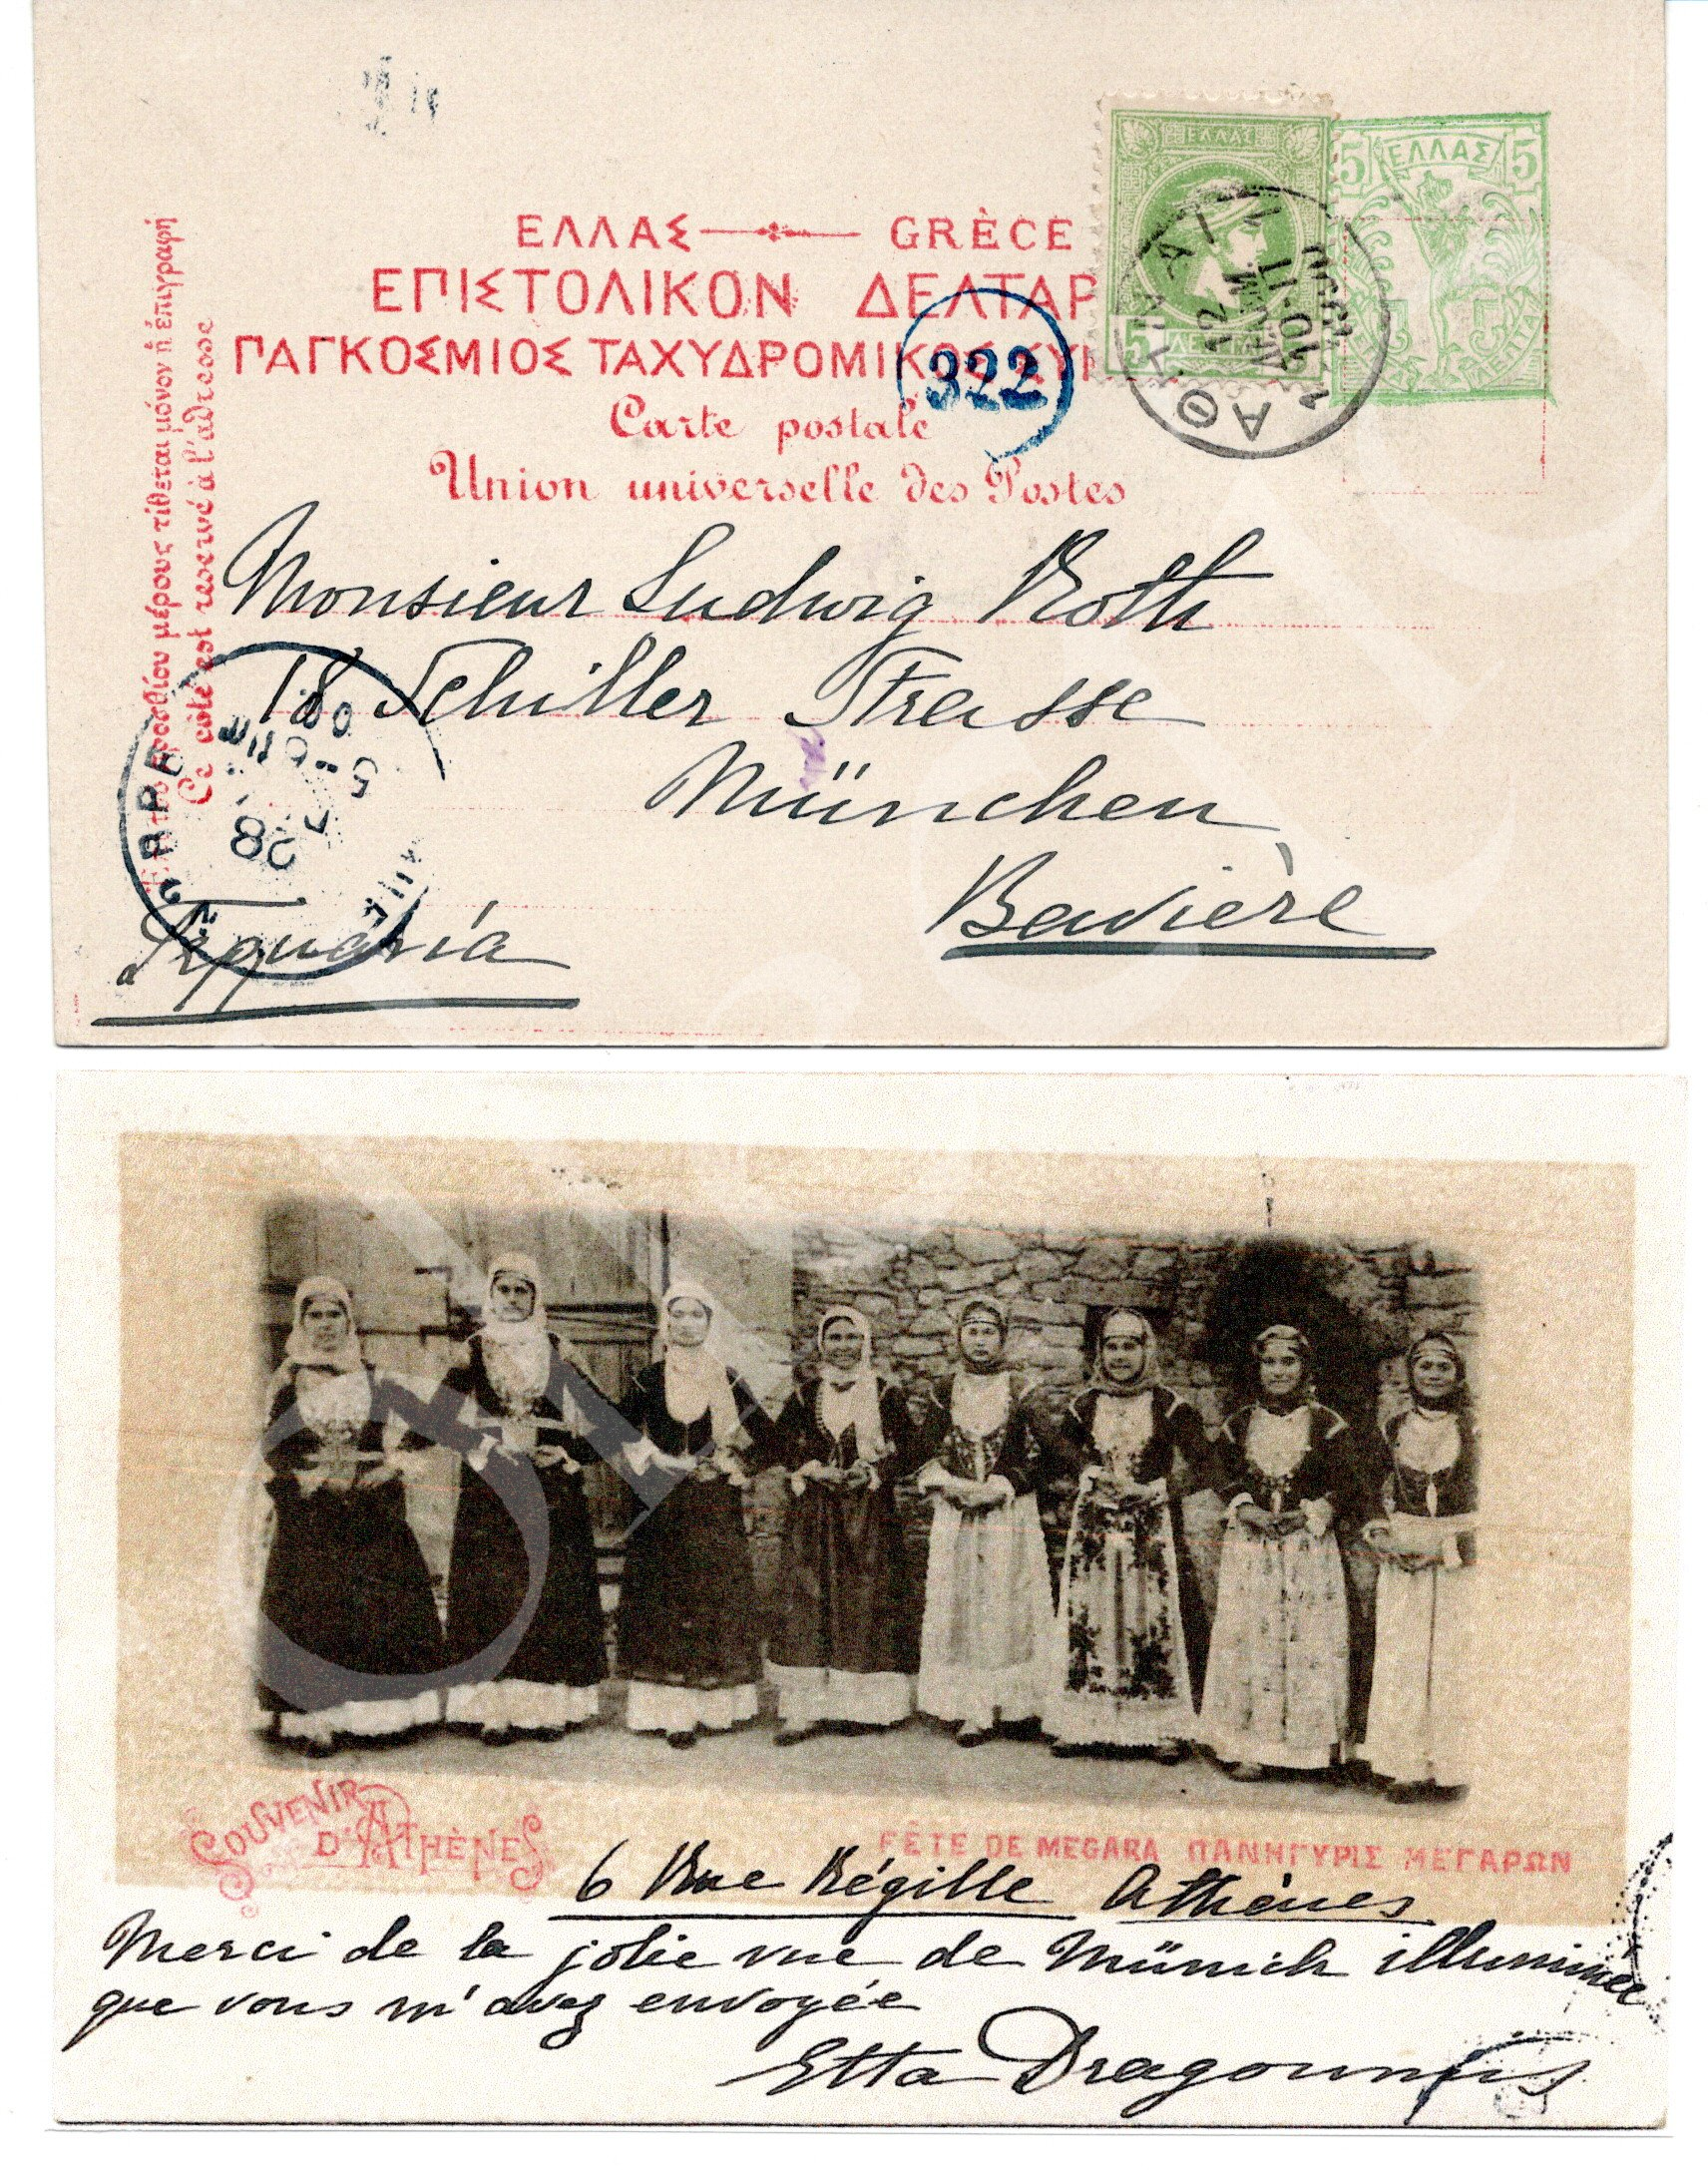 ΕΛΛΑΣ GRÈCE
ΕΠΙΣΤΟΛΙΚΟΝ ΔΕΛΤΑΡ
ΠΑΓΚΟΣΜΙΟΣ ΤΑΧΥΔΡΟΜΙΚΟΣ ΣΥ
Carte postale
Union universelle des Postes
μέρους τίθεται μόνον ἡ ἐπιγραφή
Ce côté est reservé à l'adresse
ΕΛΛΑΣ
5
5 ΕΛΛΑΣ 5
ΛΕΠΤΑ
322
ΑΘ
12
10-11
Monsieur Ludwig Roth
18 Schiller Strasse
München
Bavière
Γερμανία
28
5-6
SOUVENIR
D'ATHÈNES
FÊTE DE MEGARA ΠΑΝΗΓΥΡΙΣ ΜΕΓΑΡΩΝ
6 Rue Régille Athènes
Merci de la jolie vue de Münich illuminée
que vous m'avez envoyée
Etta Dragoumis